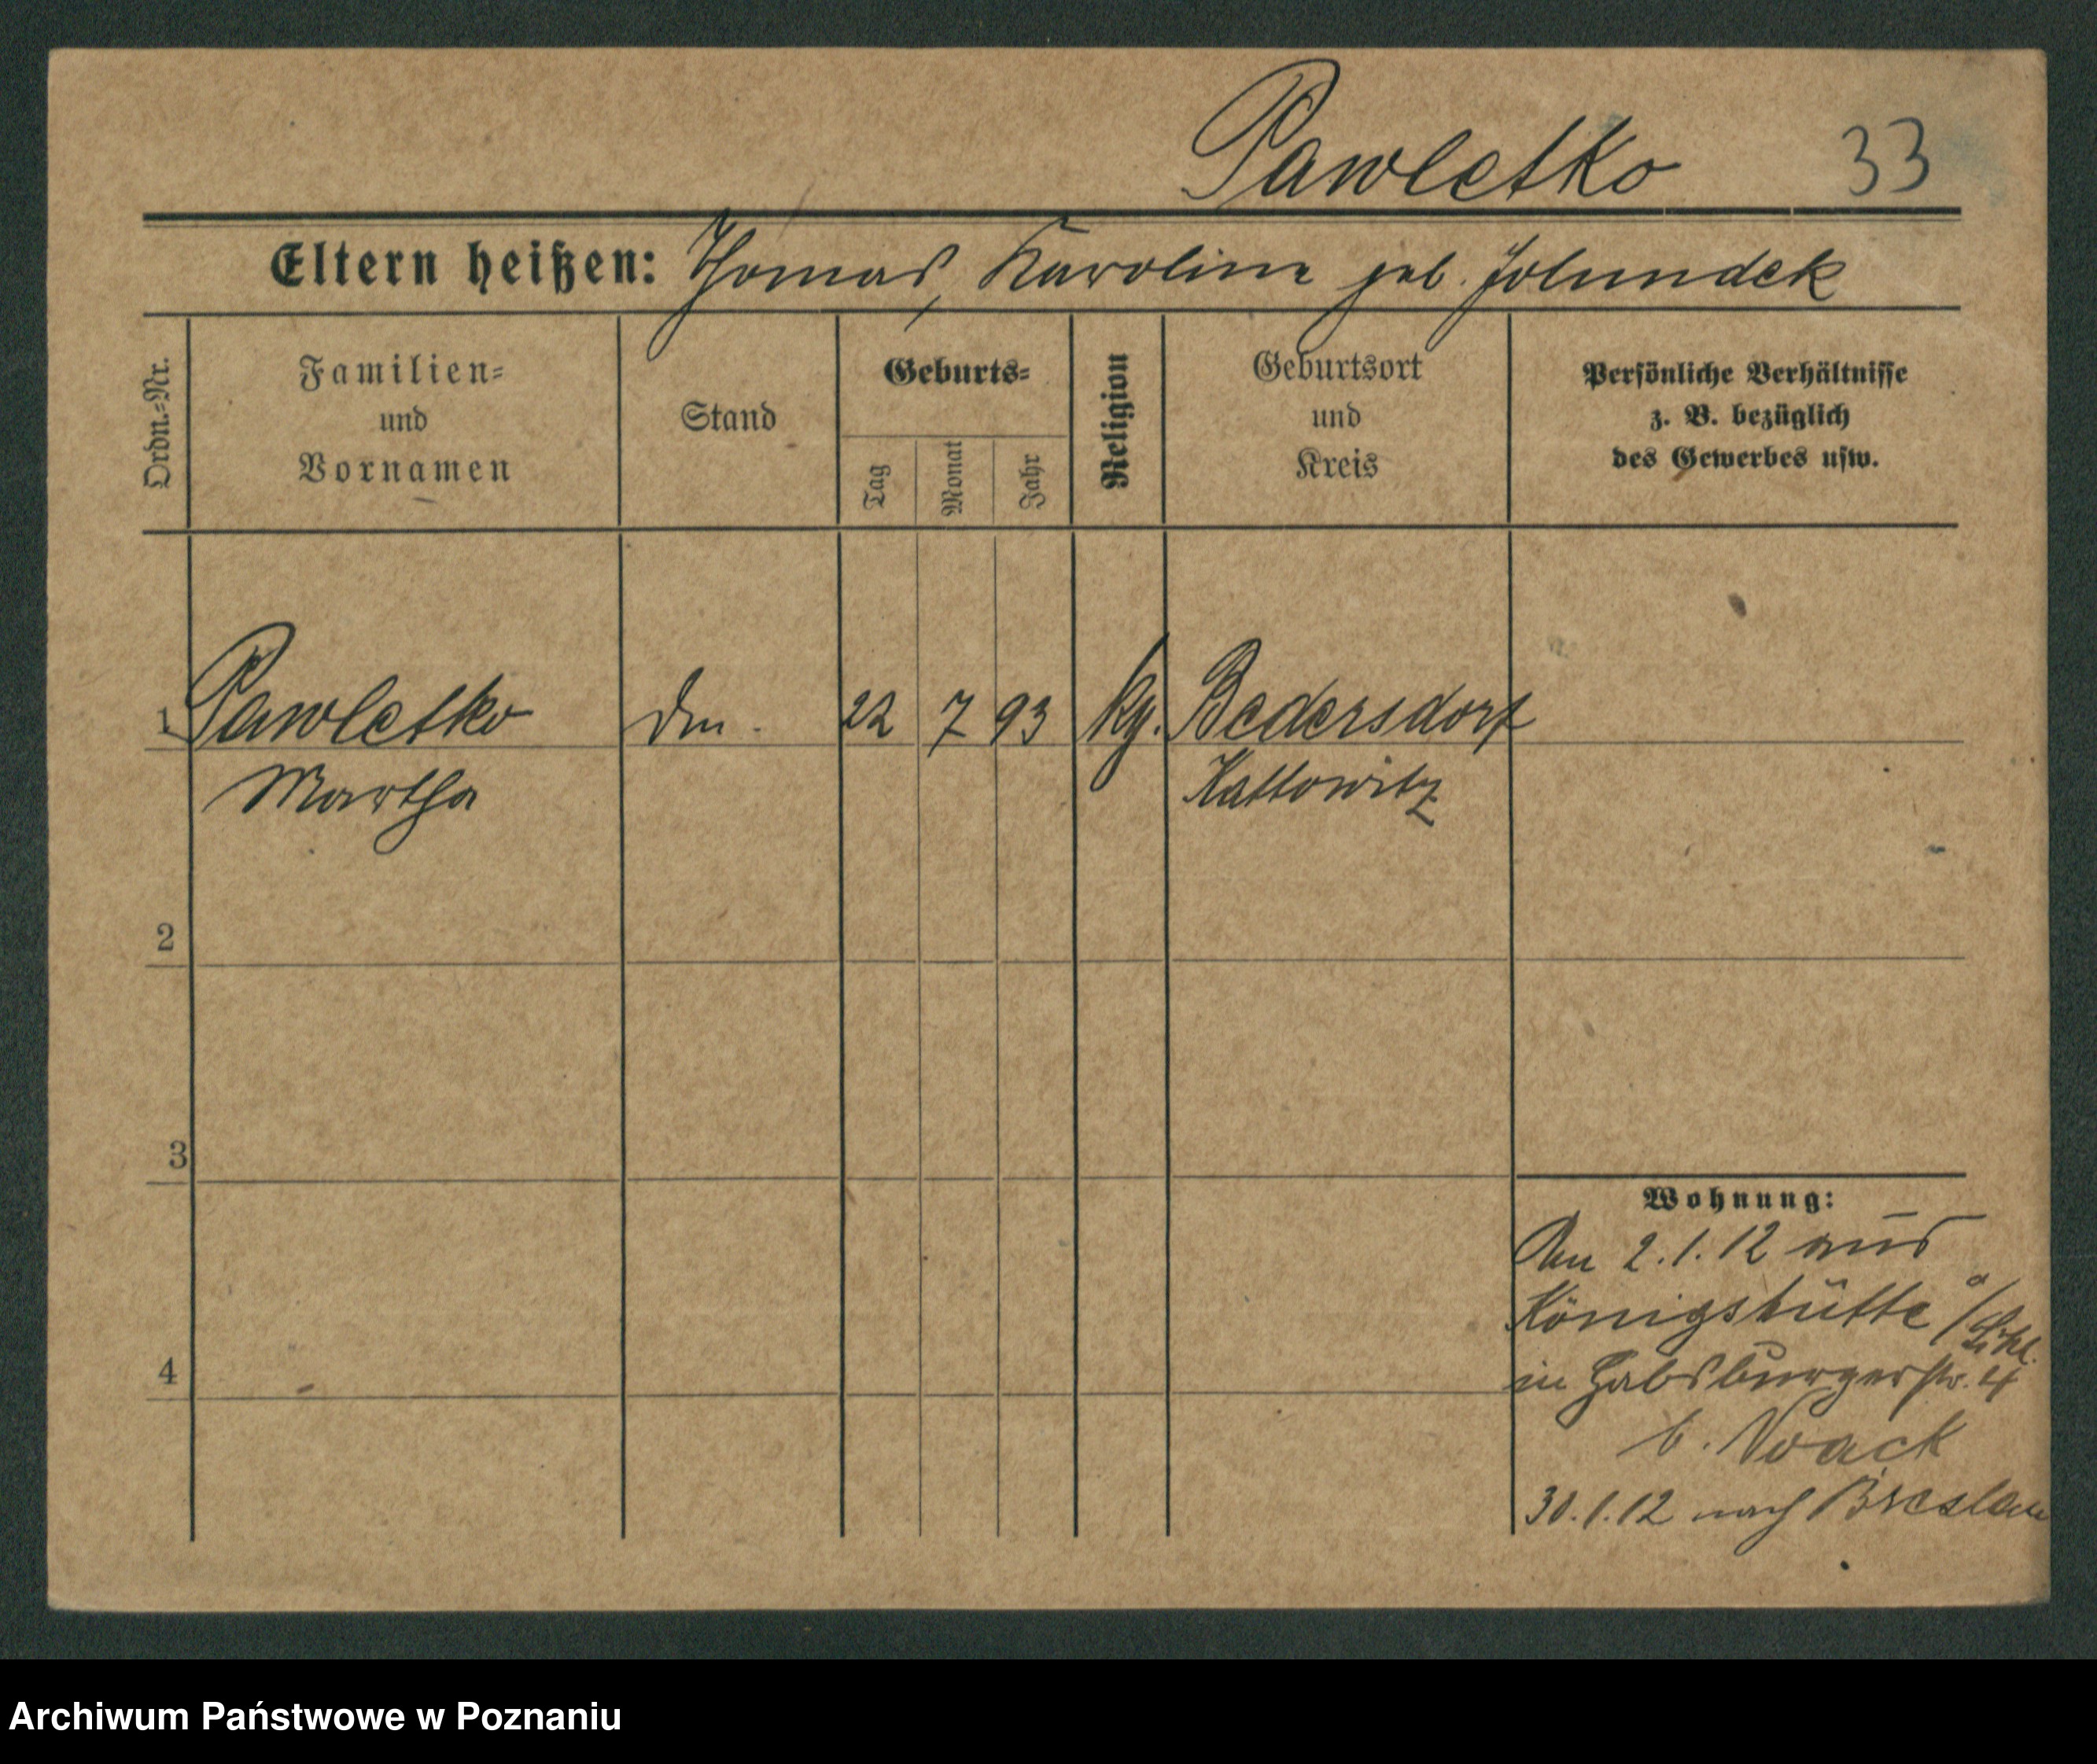 Pawletko 33
Eltern heißen: Thomas, Karoline geb. Jolundek
Ordn.=Nr.
Familien=
und
Vornamen
Stand
Geburts=
Tag
Monat
Jahr
Religion
Geburtsort
und
Kreis
Persönliche Verhältnisse
z. B. bezüglich
des Gewerbes usw.
1 Pawletko 22 7 93 Bedersdorf
Martha Kattowitz
2
3
4
Wohnung:
Am 2.1.12 aus
Königshütte
in Habsburgerstr. 4
b. Noack
30.1.12 nach Breslau
Archiwum Państwowe w Poznaniu